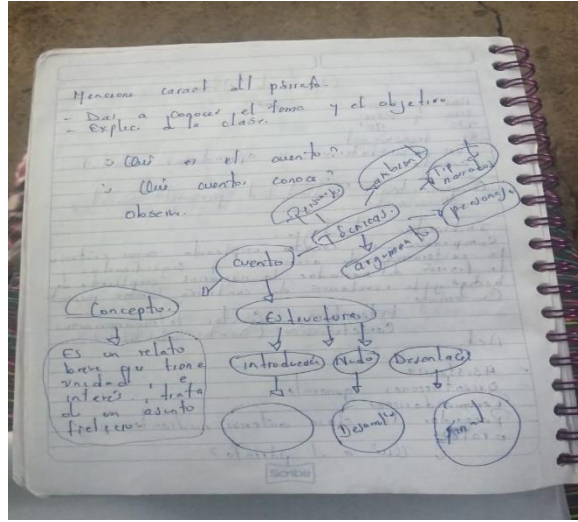 Mencione caract del párrafo.
- Dar a conocer el tema y el objetivo
- Explic. d la clase.
¿Qué es el cuento?
¿Qué cuento conoce?
observ.
ambient
Tip narrador
Técnicas.
personaj.
argumento
Cuento
Concepto.
Estructura
Es un relato
breve qu tiene
unidad, e
interés, trata
d un asunto
ficticio
introducción
Nudo
Desenlace
Desarrollo
fin
Scribe